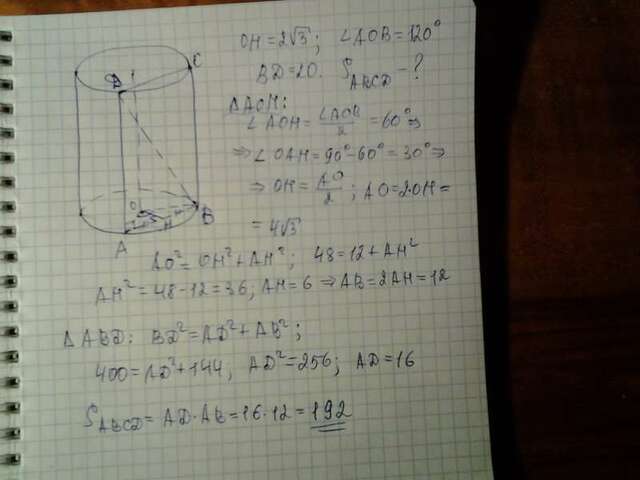 OH=2√3; ∠AOB=120°
BD=20. S_ABCD - ?
△AOH:
∠AOH=∠AOB/2=60°⇒
⇒∠OAH=90°-60°=30°⇒
⇒OH=AO/2; AO=2·OH=
=4√3
AO²=OH²+AH²; 48=12+AH²
AH²=48-12=36; AH=6 ⇒ AB=2AH=12
△ABD: BD²=AD²+AB²;
400=AD²+144; AD²=256; AD=16
S_ABCD=AD·AB=16·12=192
D
C
O
H
B
A